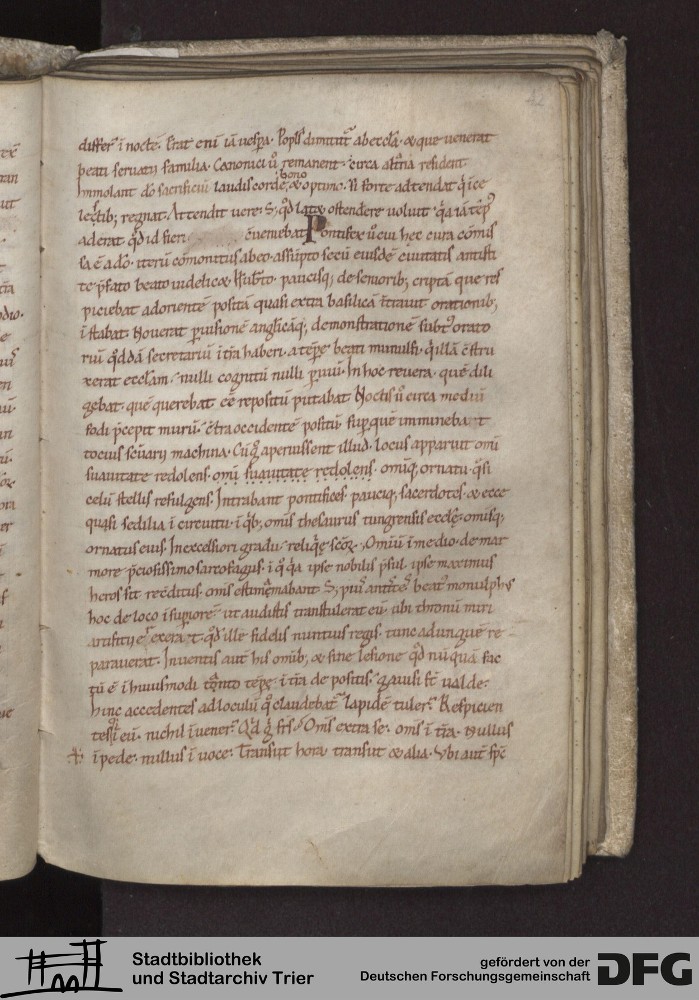 42
differr̄ ī noctē. Erat enī iā uesꝑa. Popl̓s dimittit᷑ ab eccl̄a. & que uenerat
beati seruatii familia. Canonici ū remanent. circa altīa resident.
Immolant dō sacrificiū laudis corde bono & optimo. si forte adtendat q̄ i ce
lestib; regnat. Attendit uere. S; qd̄ late ostendere uoluit. q̄a iā tēp̄
aderat qd̄ id fieri conueniebat. Pontifex ū cui hec cura cōmis
sa ē a dō. iterū cōmonitus ab eo. assūpto secū eiusdē ciuitatis antisti
te p̄fato beato uidelicet
paucisq; de senioribus, criptā que res
piciebat ad orientē positā quasi extra basilicā ītrauit. orationib;
īstabat. Nouerat ꝑ uisionē anglicāq; demonstrationē subt᷑ orato
riū qd̄dā secretariū ī tīa haberi. a tēpe beati munulfi. q̄ illā ꝯstru
xerat eccl̄am. nulli cognitū nulli ꝑuiū. In hoc reuera. quē dili
gebat. quē querebat eē repositū putabat. Noctis ū circa mediū
fodi p̄cepit murū. ꝯtra occidentē positū. suꝑ quē imminebat
tocius machina. Cūq; aperuissent illud. locus apparuit omī
suauitate redolens. omī suauitate redolens. omīq; ornatu. q̄si
celū stellis refulgens. Intrabant pontifices. pauciq; sacerdotes. & ecce
quasi sedilia ī circuitu. ī q̄b; omīs thesaurus tungrensis eccle. omīsq;
ornatus eius. In excelsiori gradu reliq̄e scōꝝ. Omiū ī medio. de mar
more p̄ciosissimo sarcofagus. ī q̄ q̄a ipse nobilis p̄sul. ipse maximus
heros sit recōditus. omīs estimabant. S; piꝰ antistes beatꝰ monulphꝰ
hoc de loco ī supiorē ut audistis transtulerat eū. ubi thronū miri
artificii ei exerat. qd̄ ille fidelis nuntius regis tunc ad unguē re
parauerat. Inuentis aut̄ his omīb; & sine lesione qd̄ nūquā fac
tū ē ī huiusmodi tanto tēpe ī tīa depositis. gauisi st̄ ualde.
hinc accedentes ad loculū quo claudebat᷑ lapidē tuler̄. Respicien
tesq; ī eū. nichil īuener̄. Qd̄ g̊ frs̄? Omīs extra se. omīs ī tīa. Nullus
ī pede. nullus ī uoce. Transiit hora. transiit & alia. Vbi aut̄ spc̄
Stadtbibliothek
und Stadtarchiv Trier
gefördert von der
Deutschen Forschungsgemeinschaft
DFG